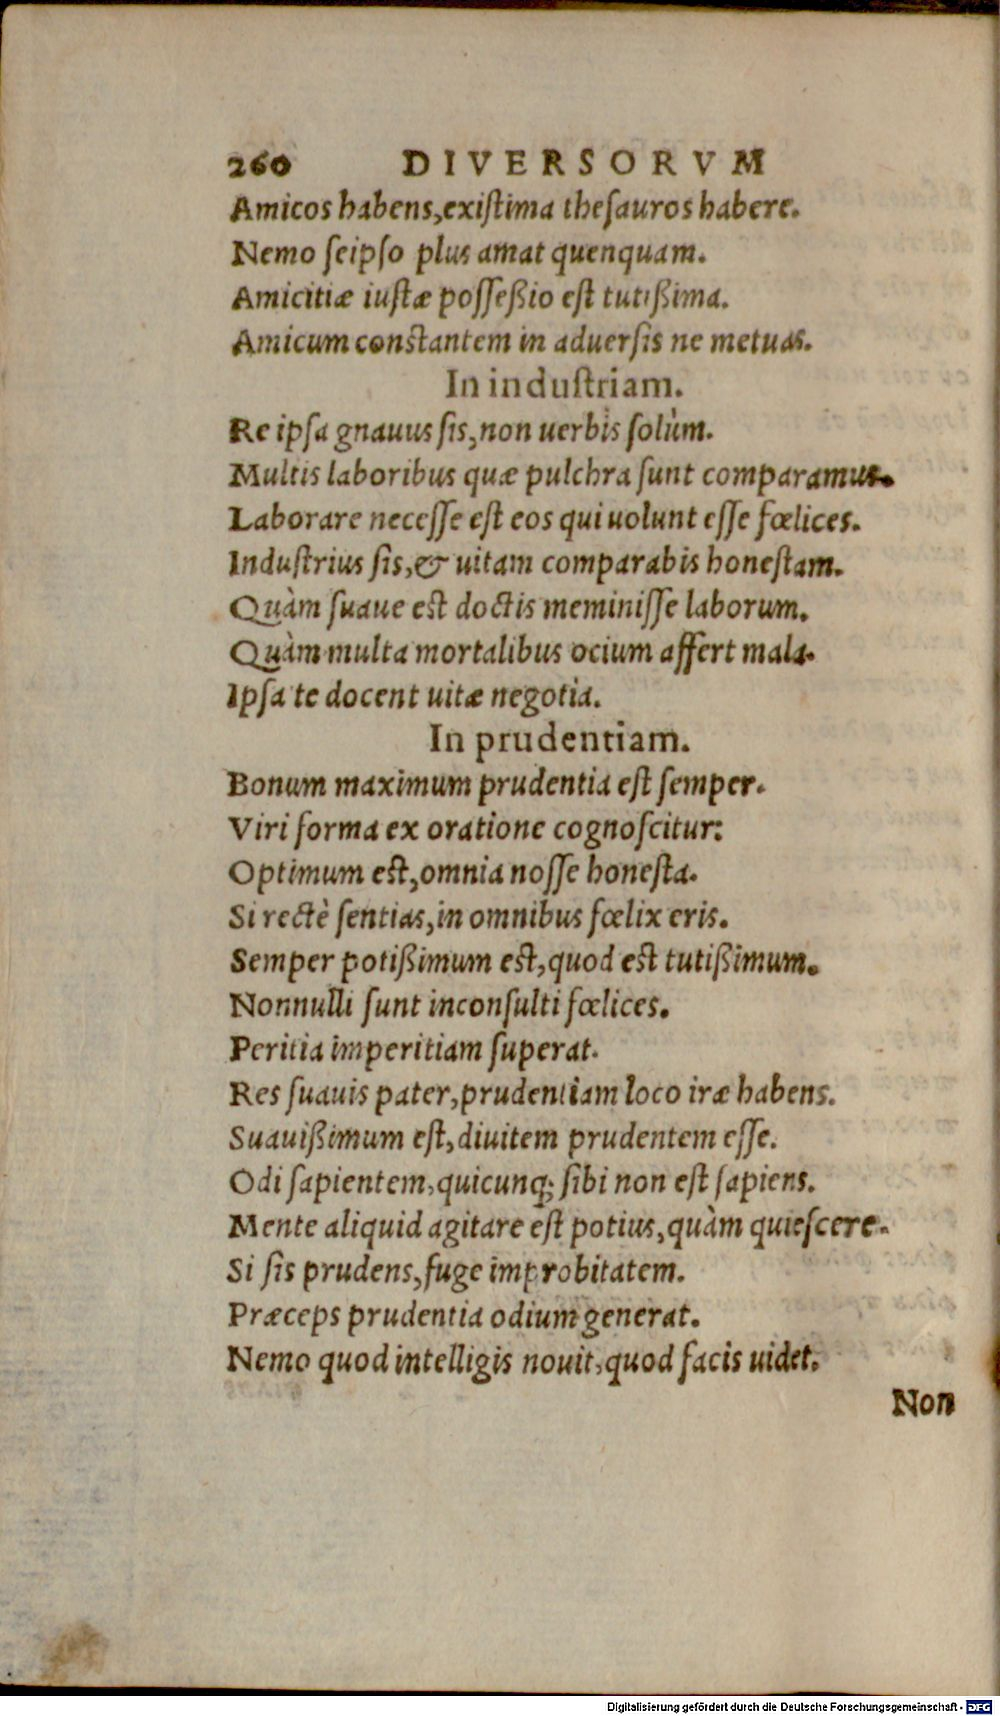 260 DIVERSORVM
Amicos habens, existima thesauros habere.
Nemo seipso plus amat quenquam.
Amicitiæ iustæ posseßio est tutißima.
Amicum constantem in aduersis ne metuas.
In industriam.
Re ipsa gnauus sis, non uerbis solùm.
Multis laboribus quæ pulchra sunt comparamus.
Laborare necesse est eos qui uolunt esse fœlices.
Industrius sis, & uitam comparabis honestam.
Quàm suaue est doctis meminisse laborum.
Quàm multa mortalibus ocium affert mala.
Ipsa te docent uitæ negotia.
In prudentiam.
Bonum maximum prudentia est semper.
Viri forma ex oratione cognoscitur:
Optimum est, omnia nosse honesta.
Si rectè sentias, in omnibus fœlix eris.
Semper potißimum est, quod est tutißimum.
Nonnulli sunt inconsulti fœlices.
Peritia imperitiam superat.
Res suauis pater, prudentiam loco iræ habens.
Suauißimum est, diuitem prudentem esse.
Odi sapientem, quicunq; sibi non est sapiens.
Mente aliquid agitare est potius, quàm quiescere.
Si sis prudens, fuge improbitatem.
Præceps prudentia odium generat.
Nemo quod intelligis nouit, quod facis uidet.
Non
Digitalisierung gefördert durch die Deutsche Forschungsgemeinschaft - DFG